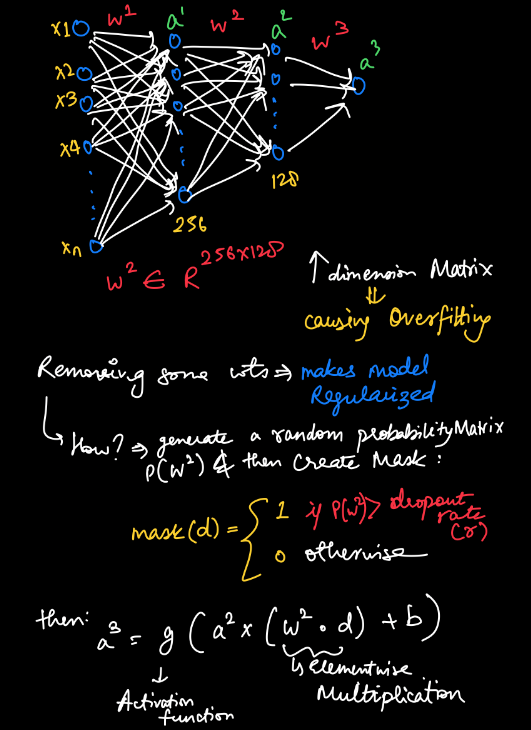 w¹ a¹ w² a² w³ a³
x1
x2
x3
x4
xn
256
128
w² ∈ R^256x128
↑ dimension Matrix
⇓
causing Overfitting
Removing some wts ⇒ makes model
Regularized
↳ How? ⇒ generate a random probability Matrix
P(w²) & then Create Mask :
mask(d) = { 1 if P(w²) > dropout rate (r)
0 otherwise
then: a³ = g ( a² x (w² • d) + b)
↳ Elementwise
Multiplication
↓
Activation
function